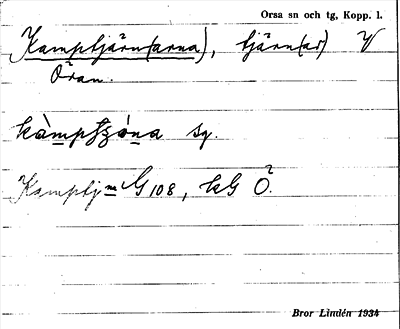 Orsa sn och tg, Kopp. l.
Kamptjärn(arna), tjärn(ar) V
Öran.
sg.
Kamptj:n G 108, kG Ö.
Bror Lindén 1934